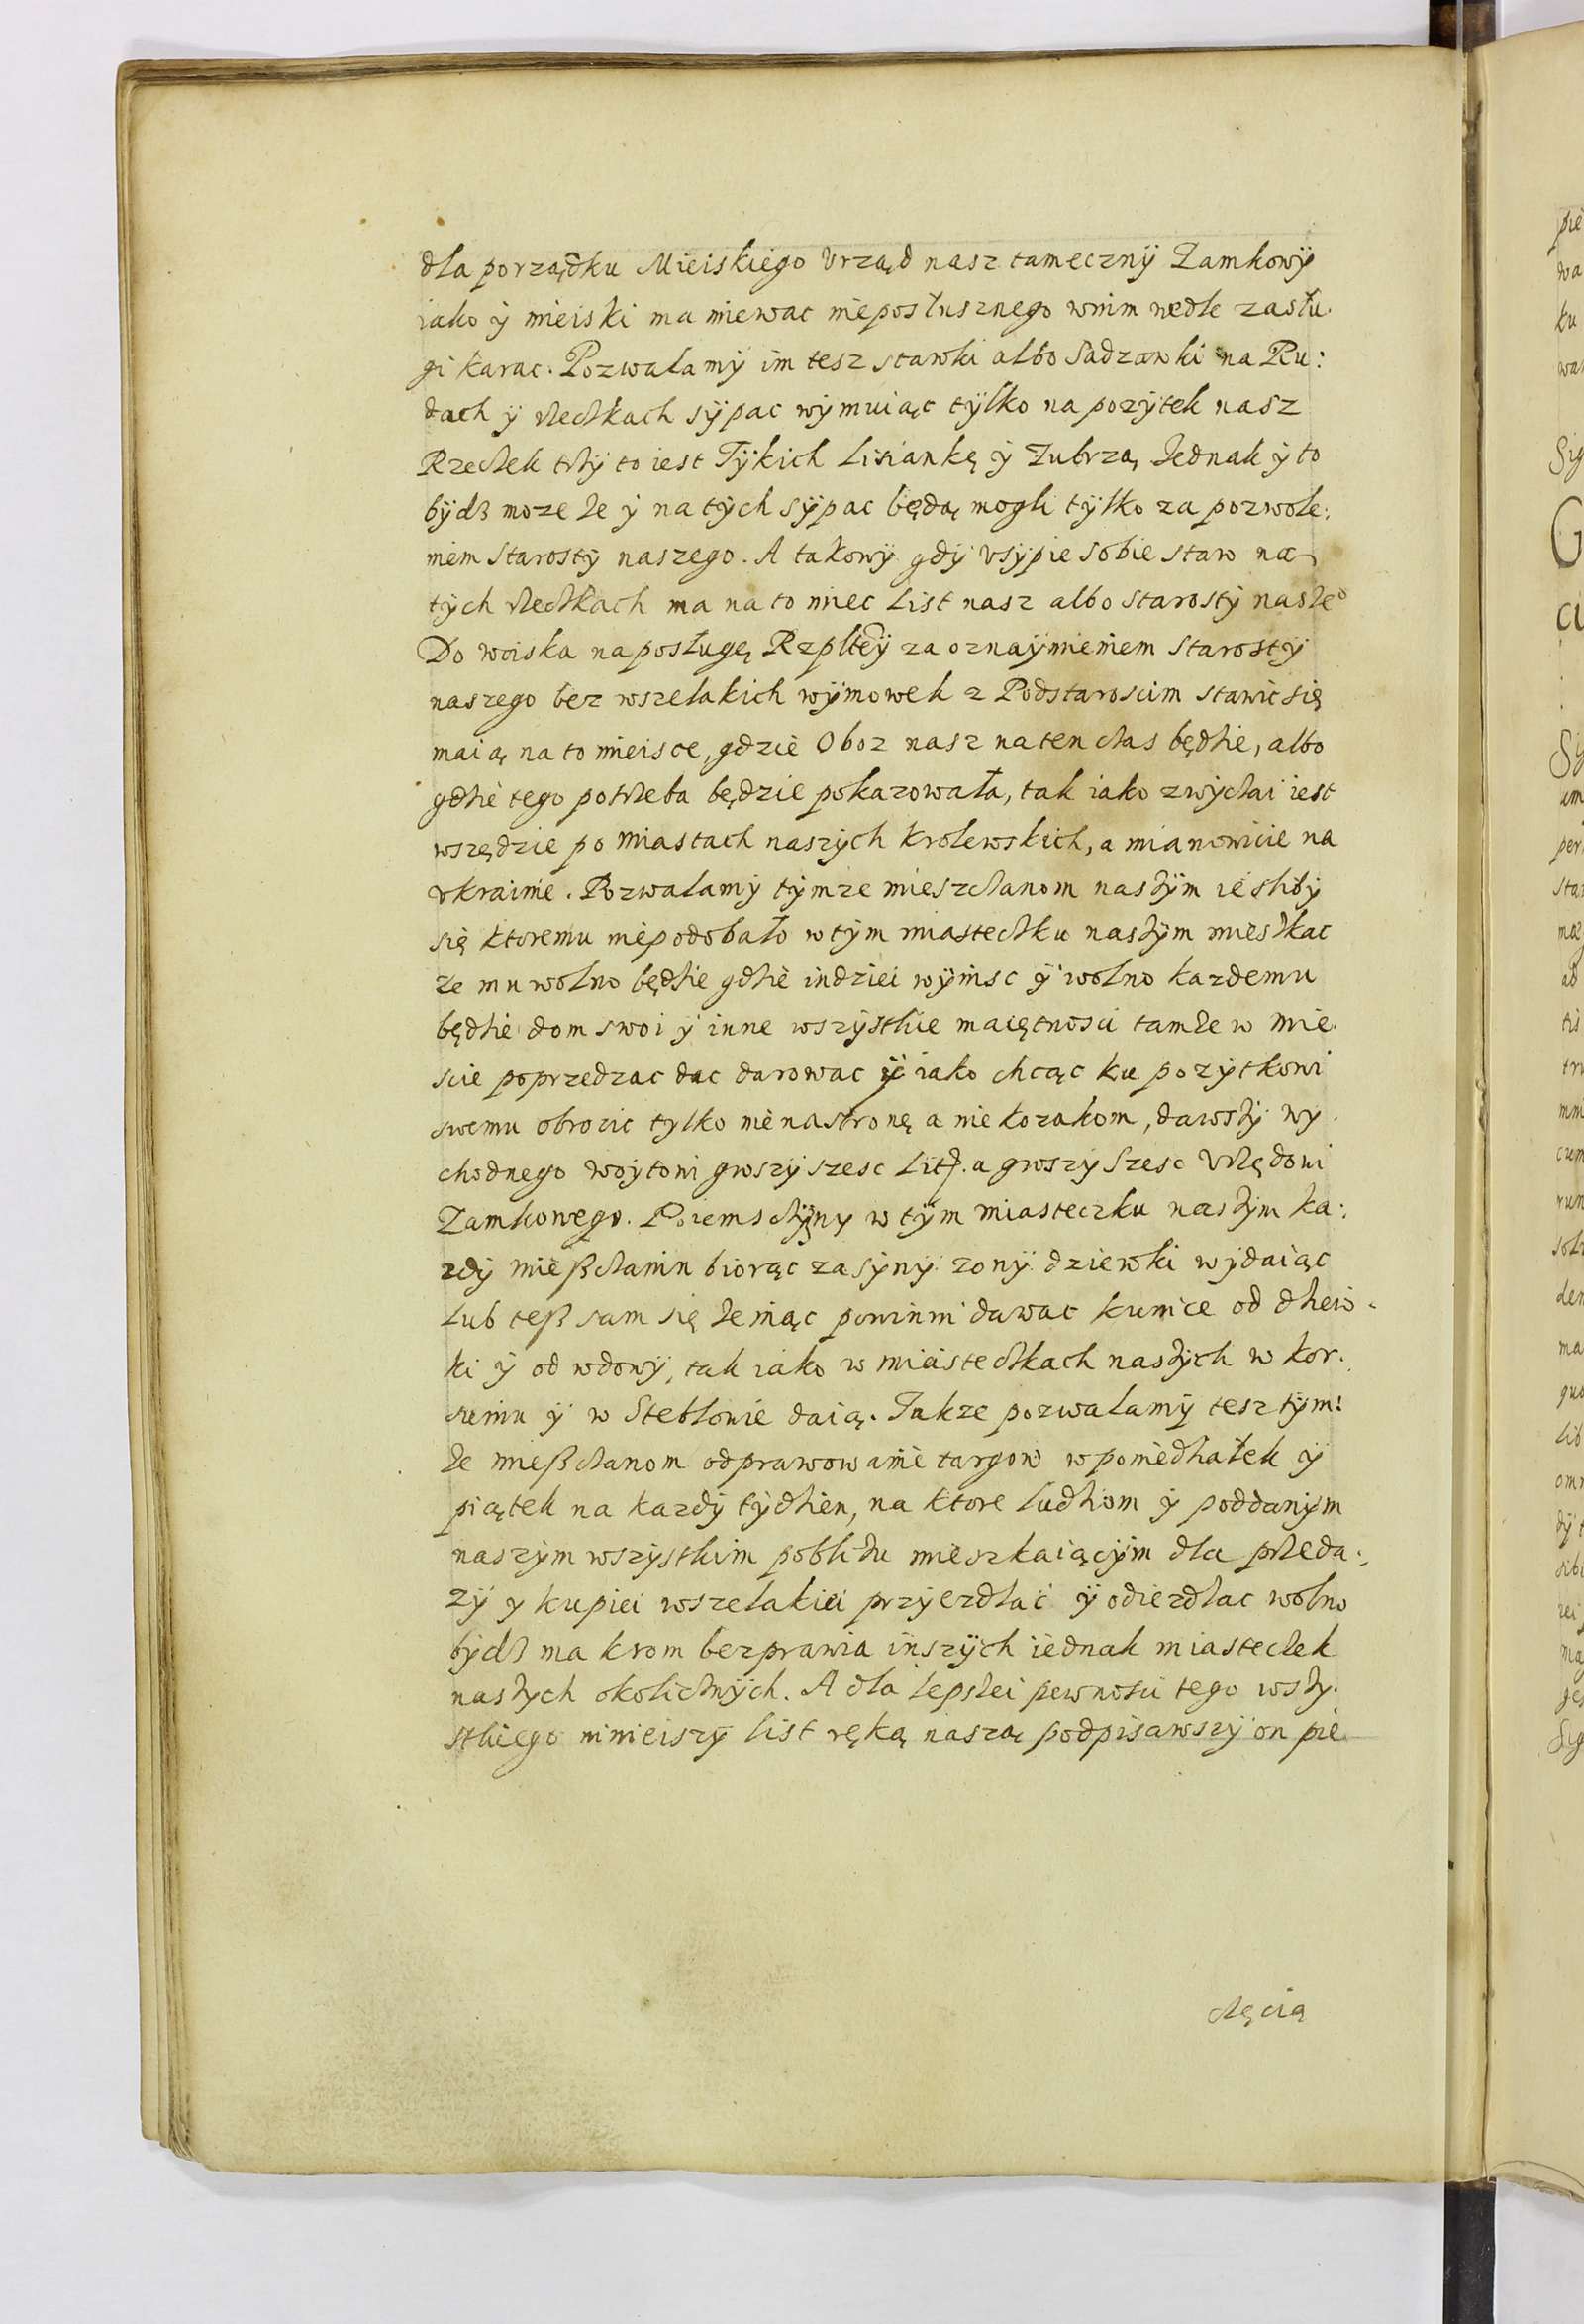 dla porządku Mieiskiego Vrząd nasz tameczny Zamkowy
iako y mieiski ma miewac nieposłusznego wnim wedle zasłu.
gi karac. Pozwalamy im tesz stawki albo Sadzawki na Ru:
dach y rzeczkach sypac wymuiąc tylko na pozytek nasz
Rzeczek trzy to iest Tykich Lisiankę y Zubrzą, Jednak y to
bydz moze ze y na tych sypac będą mogli tylko za pozwole:
niem Starosty naszego. A takowy gdy vsypie sobie staw na
tych rzeczkach ma na to miec List nasz albo starosty nasze°
Do woiska na posługę Rzpltey za oznaymieniem Starosty
naszego bez wszelakich wymowek z Podstaroscim stawic się
maią na to mieisce, gdzie Oboz nasz na ten czas będzie, albo
gdzie tego potrzeba będzie pokazowała, tak iako zwyczai iest
wszędzie po miastach naszych krolewskich, a mianowicie na
vkrainie. Pozwalamy tymze mieszczanom naszym iesliby
się ktoremu niepodobało w tym miasteczku naszym mieszkac
ze mu wolno będzie gdzie indziei wynisc y wolno kazdemu
będzie dom swoi y inne wszystkie maiętnosci tamze w mie.
scie poprzedzac dac darowac y iako chcąc ku pozytkowi
swemu obrocic tylko nie na stronę a nie kozakom, dawszy wy.
chodnego woytowi groszy szesc Lit. a groszy Szesc Vrzędowi
Zamkowego. Poiemszczyzny w tym miasteczku naszym ka:
zdy mieszczanin biorąc za syny zony dziewki wydaiąc
lub tesz sam się zeniąc powinni dawac kunice od dziew.
ki y od wdowy, tak iako w miasteczkach naszych w kor.
suniu y w Steblowie daią. Takze pozwalamy tesz tym:
ze mieszczanom odprawowanie targow w poniedziałek y
piątek na kazdy tydzien, na ktore ludziom y poddanym
naszym wszystkim poblizu mieszkaiącym dla przeda:
zy y kupiei wszelakiei przyezdzac y odiezdzac wolno
bydz ma krom bezprawia inszych iednak miasteczek
naszych okolicznych. A dla lepszei pewnosci tego wszy.
stkiego ninieiszy list ręką naszą podpisawszy on pie
częcią